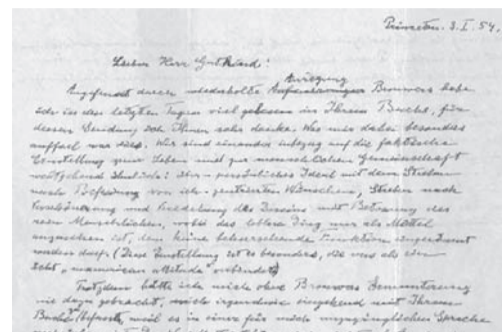 Princeton. 3. I. 54.
Lieber Herr Gutkind!
Anregung
Angefeuert durch wiederholte Brouwers habe
ich in den letzten Tagen viel gelesen in Ihrem Buche, für
dessen Sendung ich Ihnen sehr danke. Was mir dabei besonders
auffiel war dies. Wir sind einander inbezug auf die faktische
Einstellung zum Leben und zur menschlichen Gemeinschaft
weitgehend ähnlich: persönliches Ideal mit dem Streben
nach Befreiung von ich-zentrierten Wünschen, Streben nach
Verschönerung und Veredelung des Daseins mit Betonung des
rein Menschlichen, wobei das leblose Ding nur als Mittel
anzusehen ist, dem keine beherrschende Funktion eingeräumt
werden darf. (Diese Einstellung ist es besonders, die uns als ein
echt "unamerican attitude" verbindet)
Trotzdem hätte ich mich ohne Brouwers Ermunterung
nie dazu gebracht, mich irgendwie eingehend mit Ihrem
Buche zu befassen, weil es in einer für mich unzugänglichen Sprache